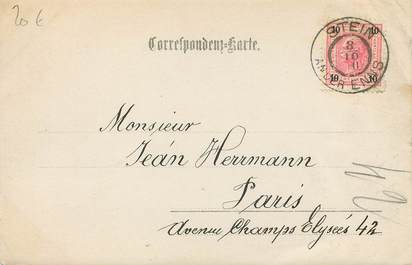 20 €
Correspondenz-Karte.
STEIN
10 10
3
10
AN DER ENNS
10 10
Monsieur
Jeán Herrmann
Paris
Avenue Champs Elyseés 42